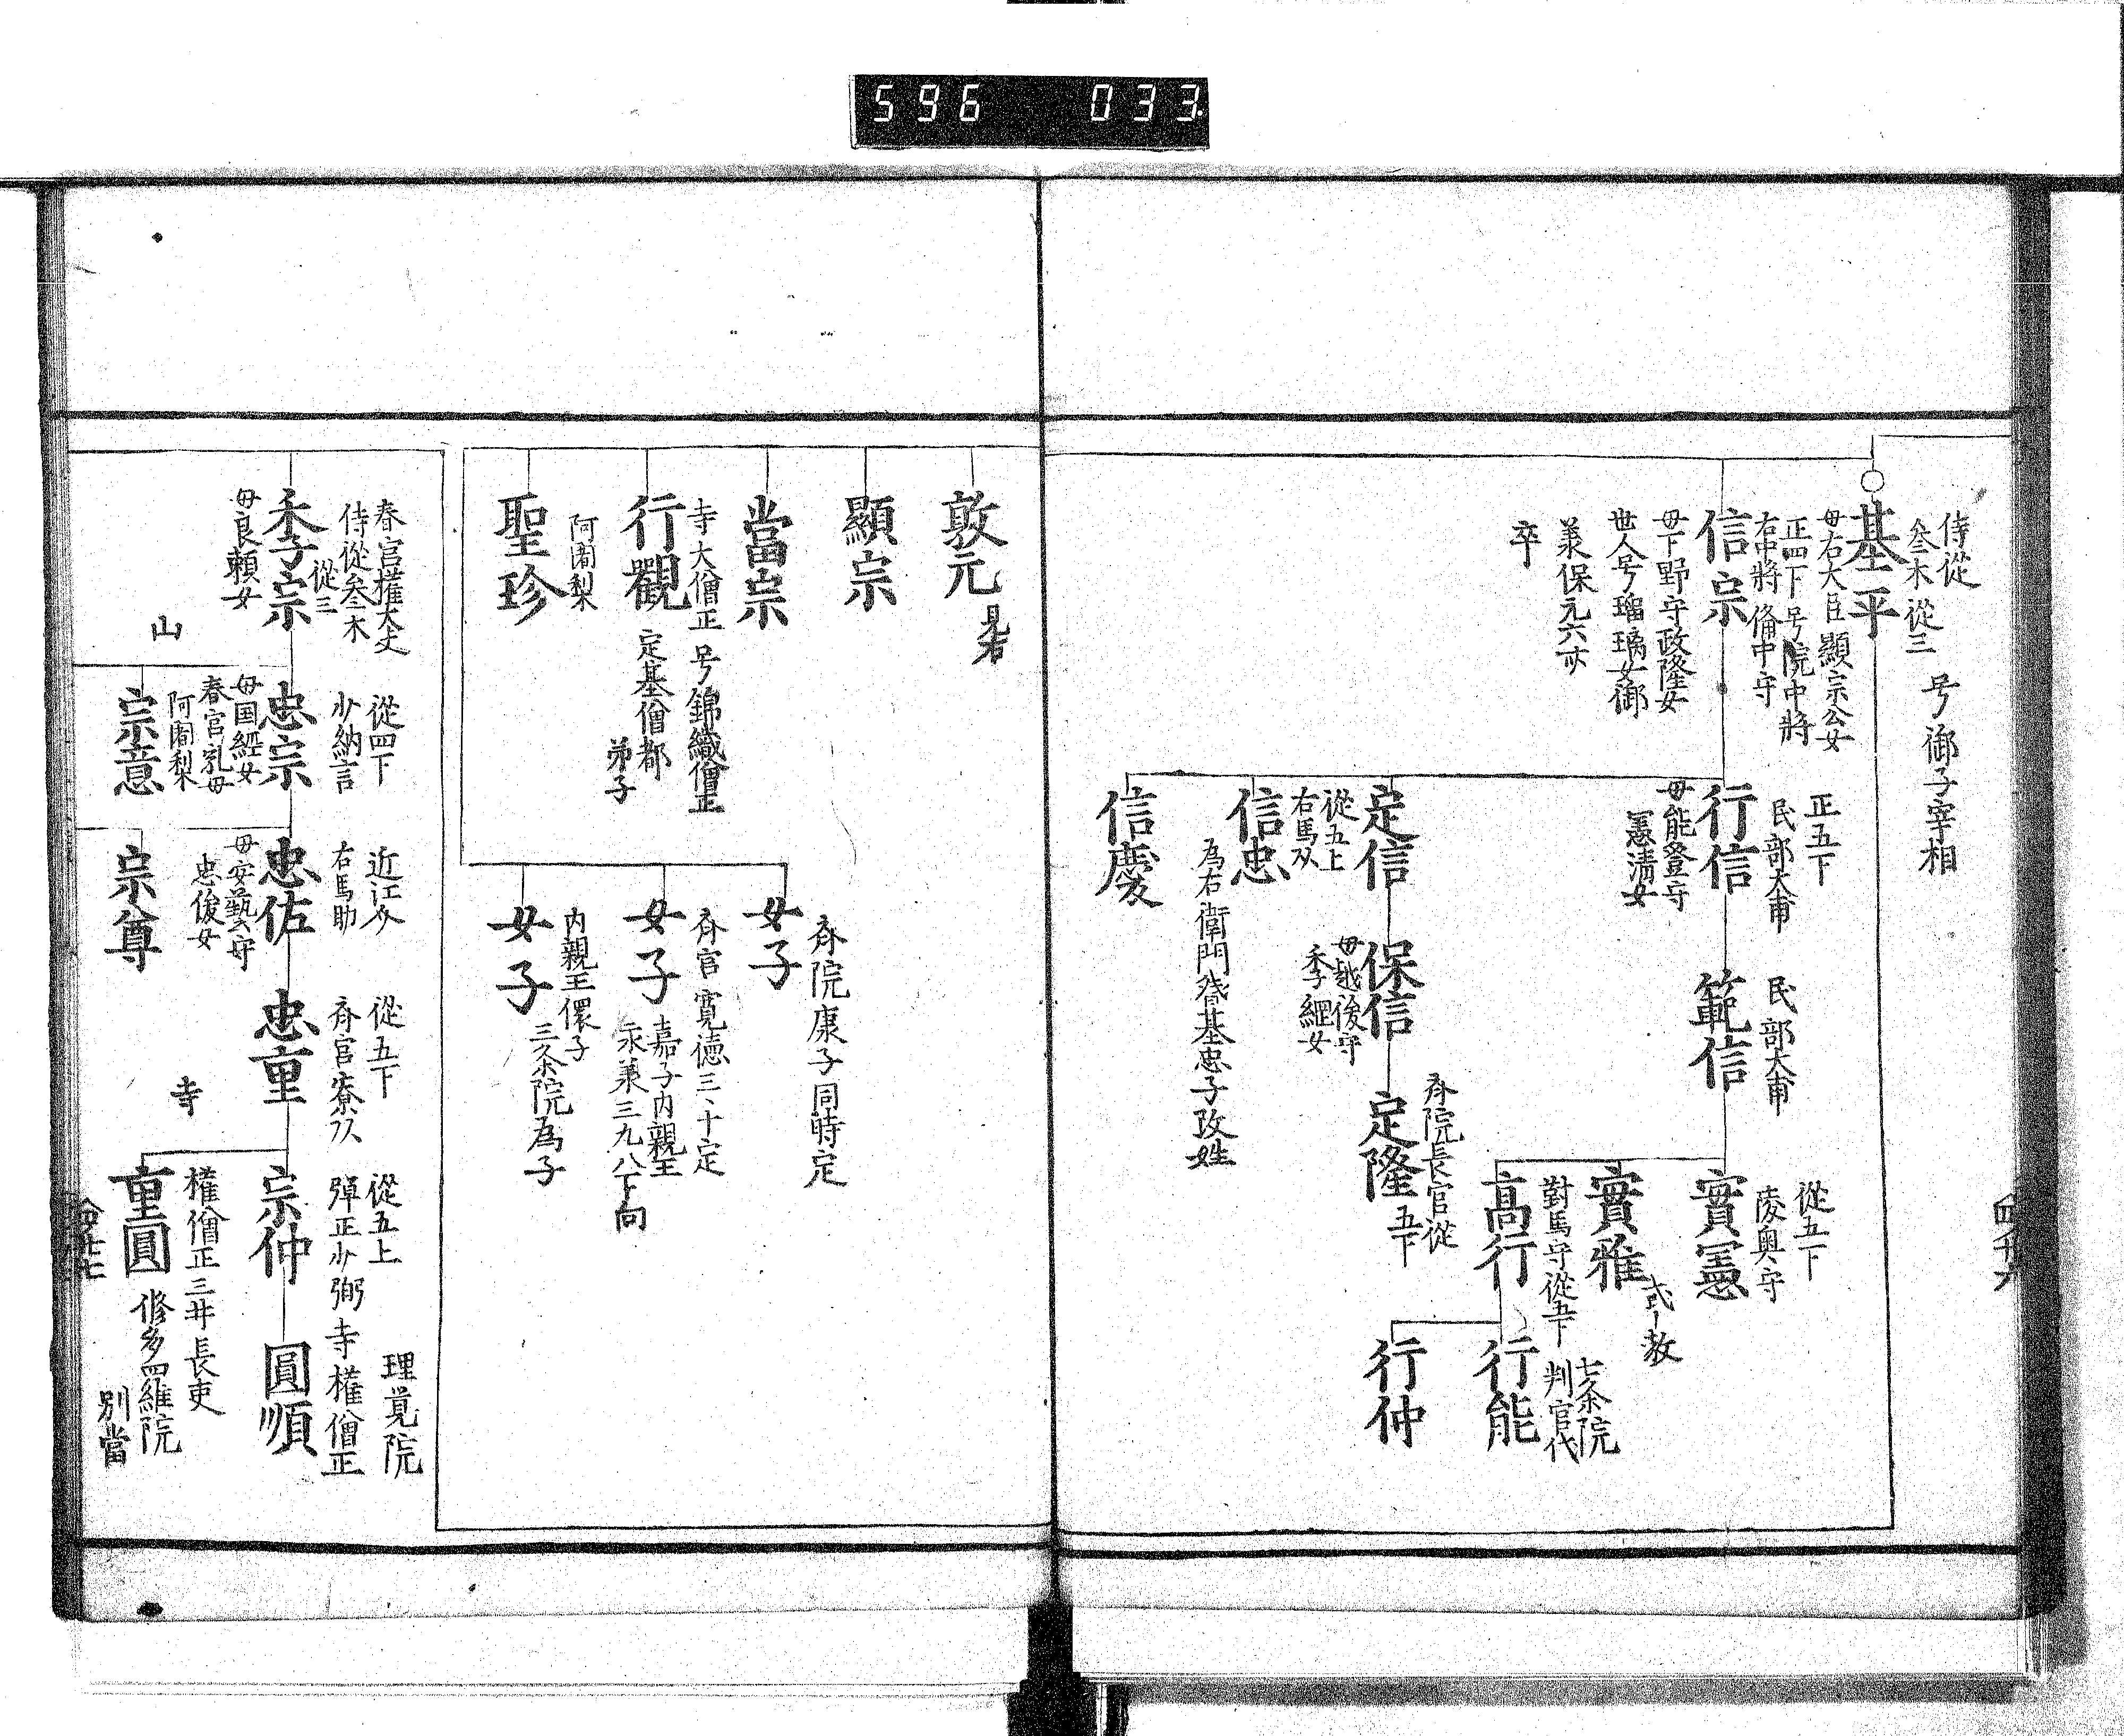 596 033
侍從
叅木 從三 号御子宰相
基平
母右大臣顯宗公女
正四下号院中將
右中將 備中守
信宗
母下野守政隆女
世人号瑠璃女御
兼保元六
卒
正五下
民部大甫
行信
母能登守
憲清女
民部大甫
範信
從五下
陵奥守
實憲
實雅
對馬守從五下
高行
七条院
判官代
行能
行仲
從五上
定信
母越後守
季綱女
保信
斉院長官從
五下
定隆
信忠
為右衛門
基忠子改姓
信慶
敦元
顯宗
當宗
寺大僧正 号錦織僧正
行觀
定基僧都
弟子
阿闍梨
聖珍
斉院康子同時定
女子
斉宮寛徳三、十定
女子
嘉子内親王
永兼三九八下向
内親王儇子
女子
三条院為子
春宮權大夫
侍從叅木
從三
季宗
母良頼女
從四下
少納言
忠宗
母国經女
春宮乳母
近江介
右馬助
忠佐
母安藝守
忠俊女
從五下
斉宮寮
忠重
從五上
彈正少弼
宗仲
理覚院
寺權僧正
圓順
山
阿闍梨
宗意
宗尊
寺
權僧正三井長吏
重圓
修多羅院
別當